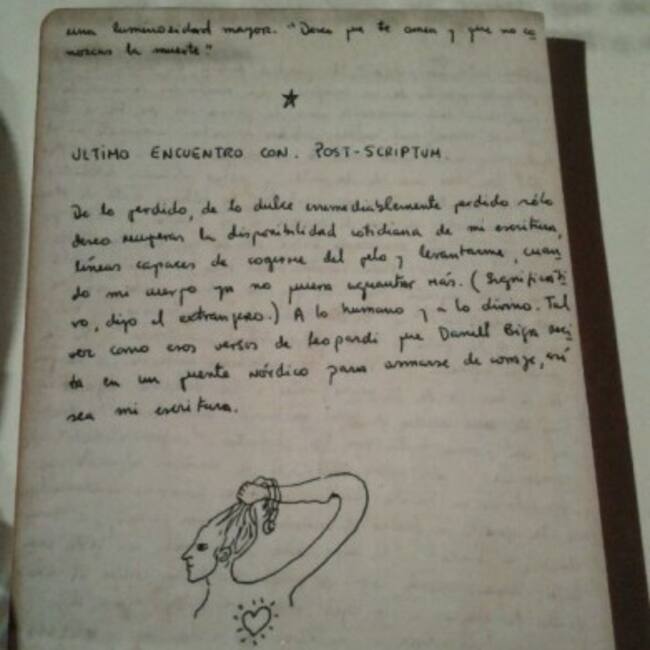 una luminosidad mayor. "Deseo que te amen y que no co
nozcas la muerte"
ULTIMO ENCUENTRO CON. POST-SCRIPTUM.
De lo perdido, de lo dulce irremediablemente perdido sólo
deseo recuperar la disponibilidad cotidiana de mi escritura,
líneas capaces de cogerme del pelo y levantarme, cuan
do mi cuerpo ya no quiera aguantar más. (Significati
vo, dijo el extranjero.) A lo humano y a lo divino. Tal
vez como esos versos de Leopardi que Daniel Biga reci
ta en un puente nórdico para armarse de coraje, así
sea mi escritura.